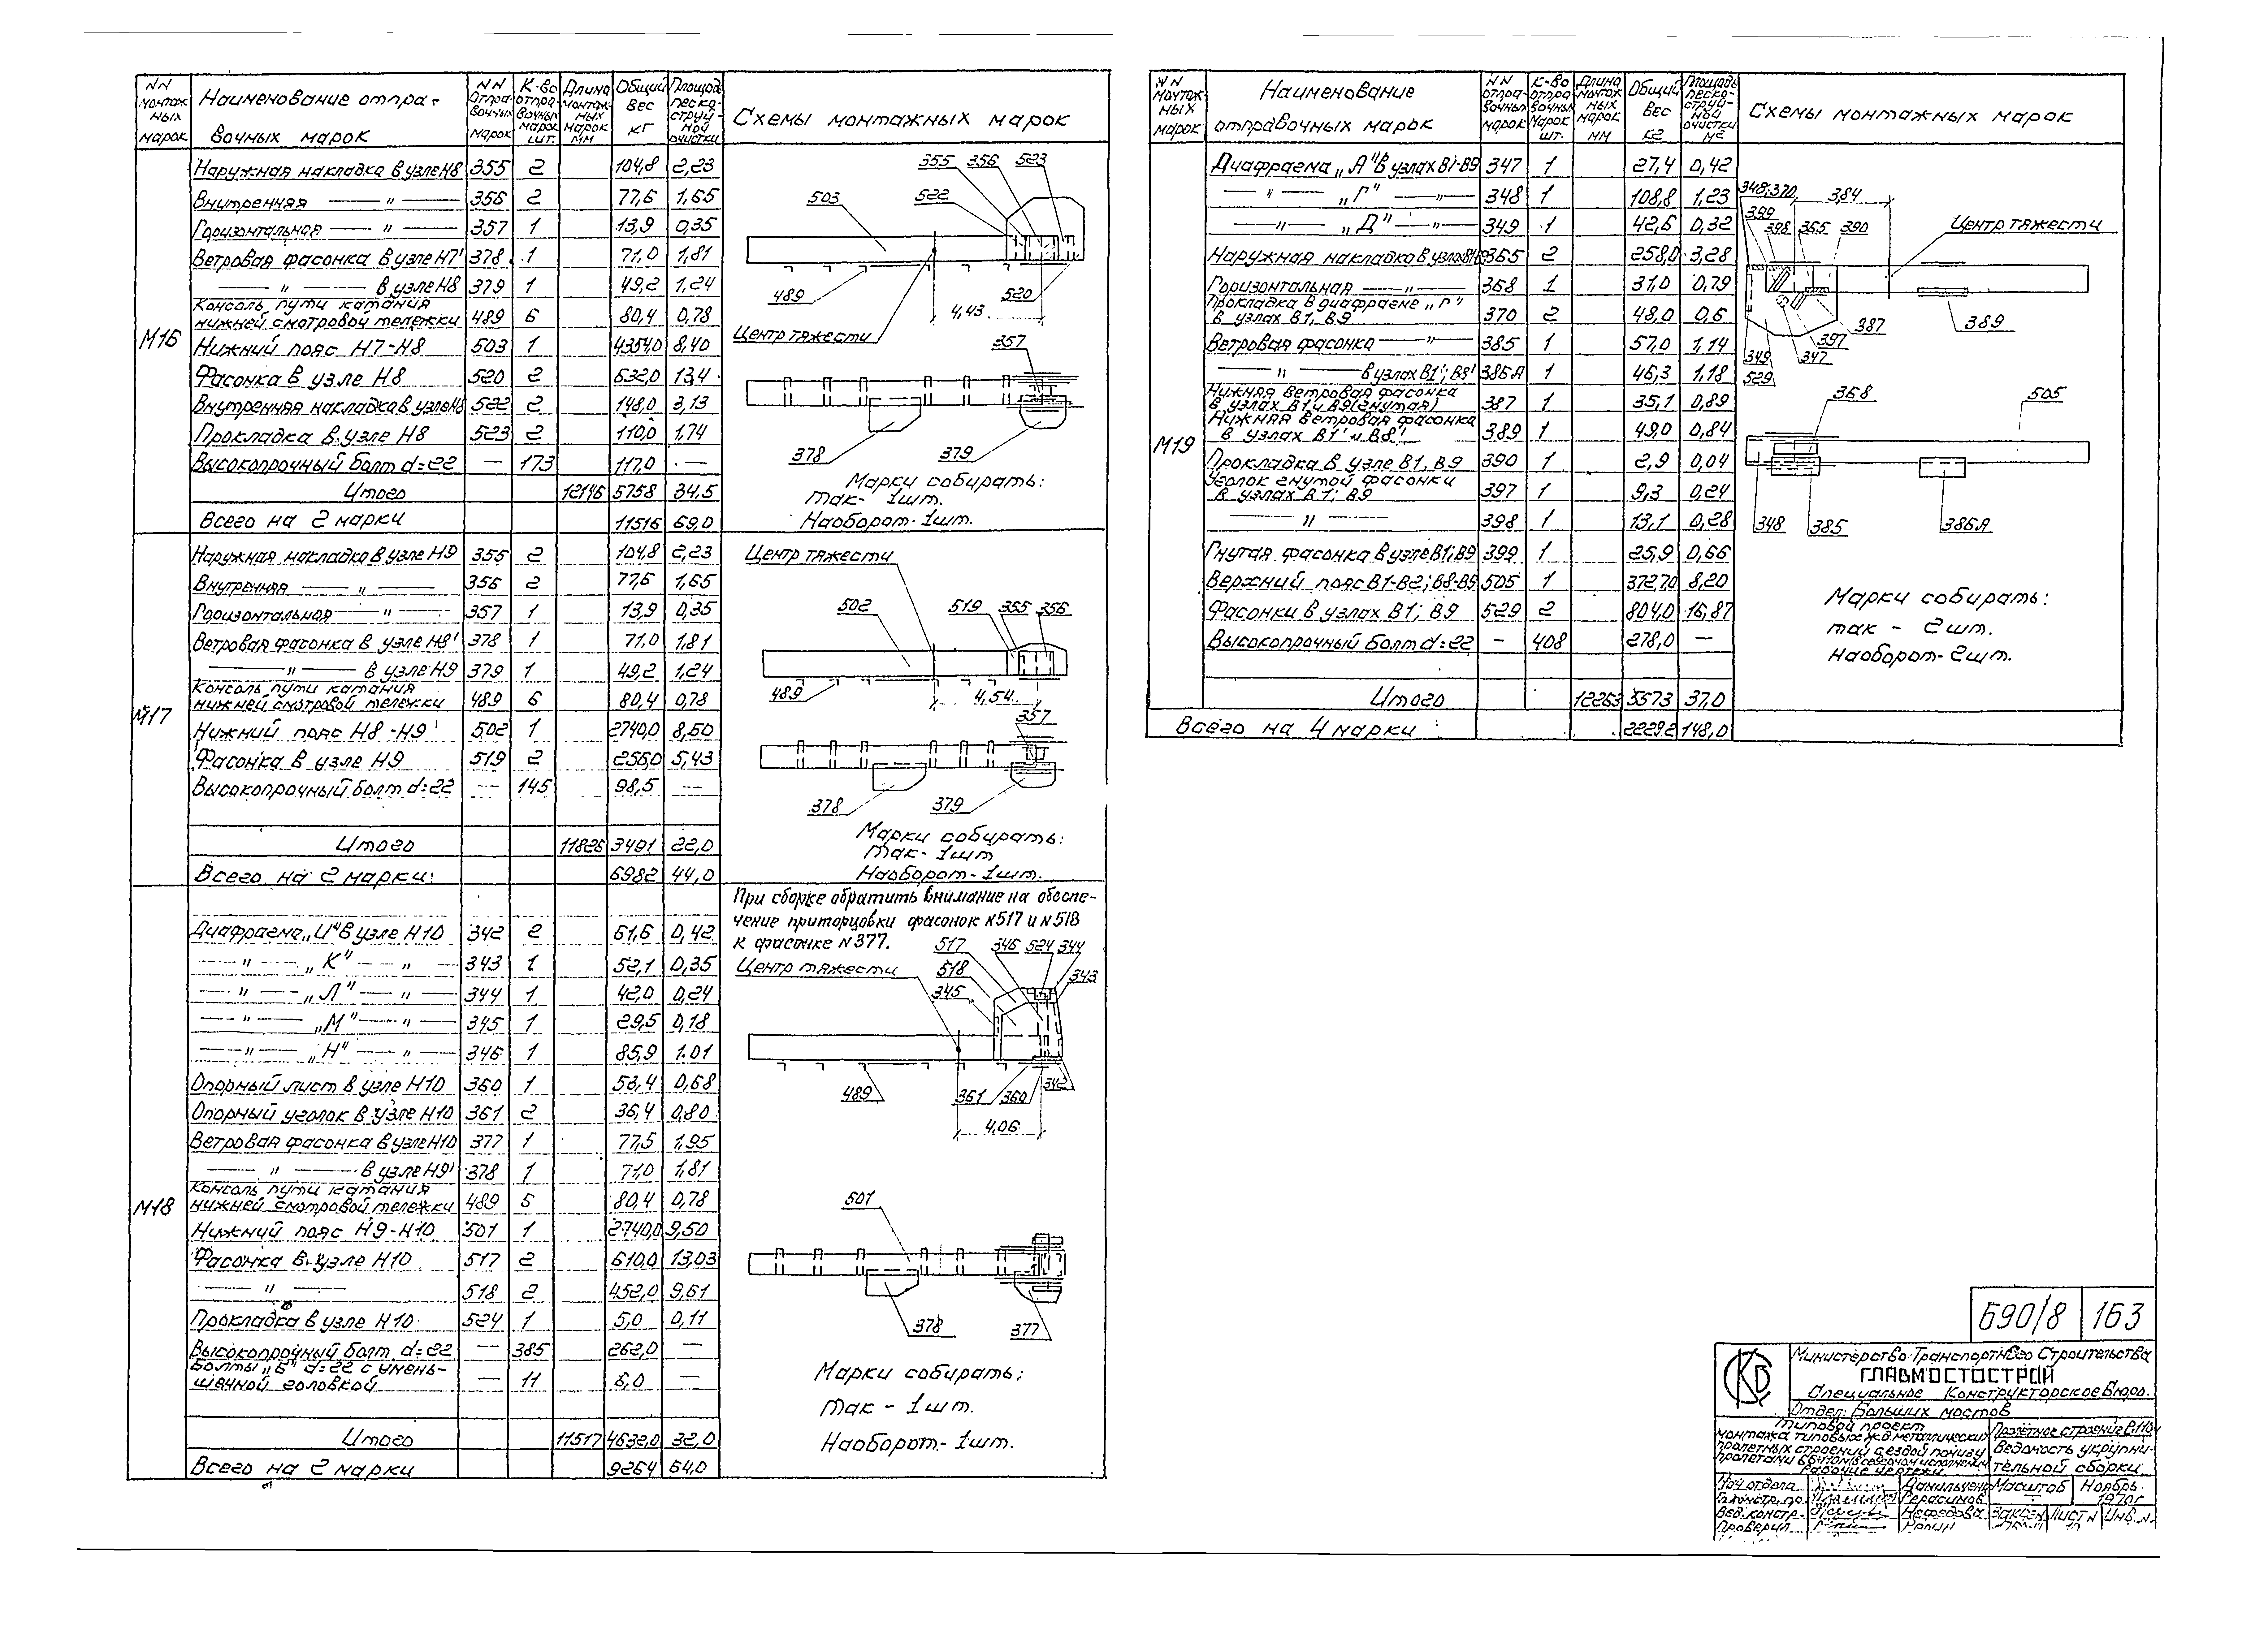 NN монтажных марок | Наименование отправочных марок | NN отправочных марок | К-во отправочных марок шт. | Длина монтажных марок мм | Общий вес кг | Площадь пескоструйной очистки | Схемы монтажных марок
М16
Наружная накладка в узле Н8 355 2 104,8 2,23
Внутренняя — " — 356 2 77,6 1,65
Горизонтальная — " — 357 1 13,9 0,35
Ветровая фасонка в узле Н7' 378 1 71,0 1,81
— " — в узле Н8 379 1 49,2 1,24
Консоль пути катания
нижней смотровой тележки 489 6 80,4 0,78
Нижний пояс Н7-Н8 503 1 4354,0 8,40
Фасонка в узле Н8 520 2 632,0 13,4
Внутренняя накладка в узле Н8 522 2 148,0 3,13
Прокладка в узле Н8 523 2 110,0 1,74
Высокопрочный болт d=22 — 173 117,0 —
Итого 12146 5758 34,5
Всего на 2 марки 11516 69,0
355 356 523
503 522
489 520
4,43
Центр тяжести
357
378 379
Марки собирать:
Так- 1шт.
Наоборот- 1шт.
М17
Наружная накладка в узле Н9 355 2 104,8 2,23
Внутренняя — " — 356 2 77,6 1,65
Горизонтальная — " — 357 1 13,9 0,35
Ветровая фасонка в узле Н8' 378 1 71,0 1,81
— " — в узле Н9 379 1 49,2 1,24
Консоль пути катания
нижней смотровой тележки 489 6 80,4 0,78
Нижний пояс Н8-Н9 502 1 2740,0 8,50
Фасонка в узле Н9 519 2 256,0 5,43
Высокопрочный болт d=22 — 145 98,5 —
Итого 11826 3491 22,0
Всего на 2 марки 6982 44,0
Центр тяжести
502 519 355 356
489 4,54
357
378 379
Марки собирать:
Так- 1шт
Наоборот- 1шт.
М18
Диафрагма „И" в узле Н10 342 2 61,6 0,42
— " — „К" — " — 343 1 52,1 0,35
— " — „Л" — " — 344 1 42,0 0,24
— " — „М" — " — 345 1 29,5 0,18
— " — „Н" — " — 346 1 85,9 1.01
Опорный лист в узле Н10 360 1 53,4 0,68
Опорный уголок в узле Н10 361 2 36,4 0,80
Ветровая фасонка в узле Н10 377 1 77,5 1,95
— " — в узле Н9' 378 1 71,0 1,81
Консоль пути катания
нижней смотровой тележки 489 5 80,4 0,78
Нижний пояс Н9-Н10 501 1 2740,0 9,50
Фасонка в узле Н10 517 2 610,0 13,03
— " — 518 2 452,0 9,61
Прокладка в узле Н10 524 1 5,0 0,11
Высокопрочный болт d=22 — 385 262,0 —
Болты „Б" d=22 с умень-
шенной головкой — 11 6,0 —
Итого 11517 4632,0 32,0
Всего на 2 марки 9264 64,0
При сборке обратить внимание на обеспе-
чение приторцовки фасонок N517 и N518
к фасонке N377.
517 346 524 344
Центр тяжести 518 343
345
489 361 360 342
4,06
501
378 377
Марки собирать:
Так - 1шт.
Наоборот- 1шт.
NN монтажных марок | Наименование отправочных марок | NN отправочных марок | К-во отправочных марок шт. | Длина монтажных марок мм | Общий вес кг | Площадь пескоструйной очистки м2 | Схемы монтажных марок
М19
Диафрагма „А" в узлах В1-В9 347 1 27,4 0,42
— " — „Г" — " — 348 1 108,8 1,23
— " — „Д" — " — 349 1 42,6 0,32
Наружная накладка в узлах В1;В9 365 2 258,0 3,28
Горизонтальная — " — 368 1 31,0 0,79
Прокладка в диафрагме „Г"
в узлах В1; В9 370 2 48,0 0,6
Ветровая фасонка — " — 385 1 57,0 1,14
— " — в узлах В1'; В8' 386А 1 46,3 1,18
Нижняя ветровая фасонка
в узлах В1 и В9 (гнутая) 387 1 35,1 0,89
Нижняя ветровая фасонка
в узлах В1' и В8' 389 1 49,0 0,84
Прокладка в узле В1, В9 390 1 2,9 0,04
Уголок гнутой фасонки
в узлах В1; В9 397 1 9,3 0,24
— " — 398 1 13,1 0,28
Гнутая фасонка в узле В1;В9 399 1 25,9 0,66
Верхний пояс В1-В2; В8-В9 505 1 3727,0 8,20
Фасонки в узлах В1; В9 529 2 804,0 16,87
Высокопрочный болт d=22 — 408 278,0 —
Итого 12263 5573 37,0
Всего на 4 марки 22292 148,0
348;370 3,84
399 398 365 390
Центр тяжести
387 389
397
349 347
529
368 505
348 385 386А
Марки собирать:
так - 2шт.
наоборот- 2шт.
690/8 163
Министерство Транспортного Строительства
ГЛАВМОСТОСТРОЙ
Специальное Конструкторское Бюро.
Отдел: Больших мостов
Типовой проект
монтажа типовых ж.д. металлических
пролетных строений с ездой понизу
Рабочие чертежи
Ведомость укрупни-
тельной сборки.
Нач отдела Данильченко Масштаб Ноябрь
Герасимов 1970г
Вед. констр. Нефедова Заказ Лист N Инв. N
Проверил